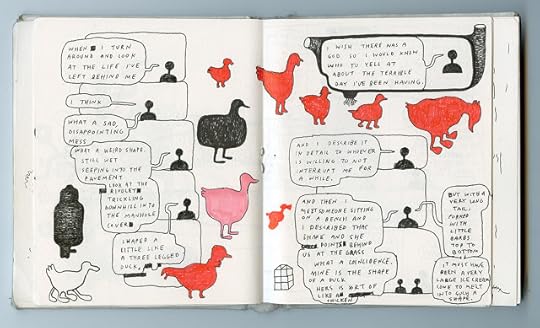 WHEN I TURN
AROUND AND LOOK
AT THE LIFE I'VE
LEFT BEHIND ME
I THINK
WHAT A SAD,
DISAPPOINTING
MESS
WHAT A WEIRD SHAPE.
STILL WET
SEEPING INTO THE
PAVEMENT
LOOK AT THE
RIVULET
TRICKLING
DOWNHILL INTO
THE MANHOLE
COVER
SHAPED A
LITTLE LIKE
A THREE LEGGED
DUCK,
I WISH THERE WAS A
GOD SO I WOULD KNOW
WHO TO YELL AT
ABOUT THE TERRIBLE
DAY I'VE BEEN HAVING.
AND I DESCRIBE IT
IN DETAIL TO WHOEVER
IS WILLING TO NOT
INTERRUPT ME FOR
A WHILE.
AND THEN I
MEET SOMEONE SITTING
ON A BENCH AND
I DESCRIBED THAT
SHAPE AND SHE
POINTS BEHIND
US AT THE GRASS
WHAT A COINCIDENCE.
MINE IS THE SHAPE
OF A DUCK
HERS IS SORT OF
LIKE A
CHICKEN
BUT WITH A
VERY LONG
TAIL
FORMED
WITH
LITTLE
BARBS
TOP TO
BOTTOM
IT MUST HAVE
BEEN A VERY
LARGE ICE CREAM
CONE TO MELT
INTO SUCH A
SHAPE.